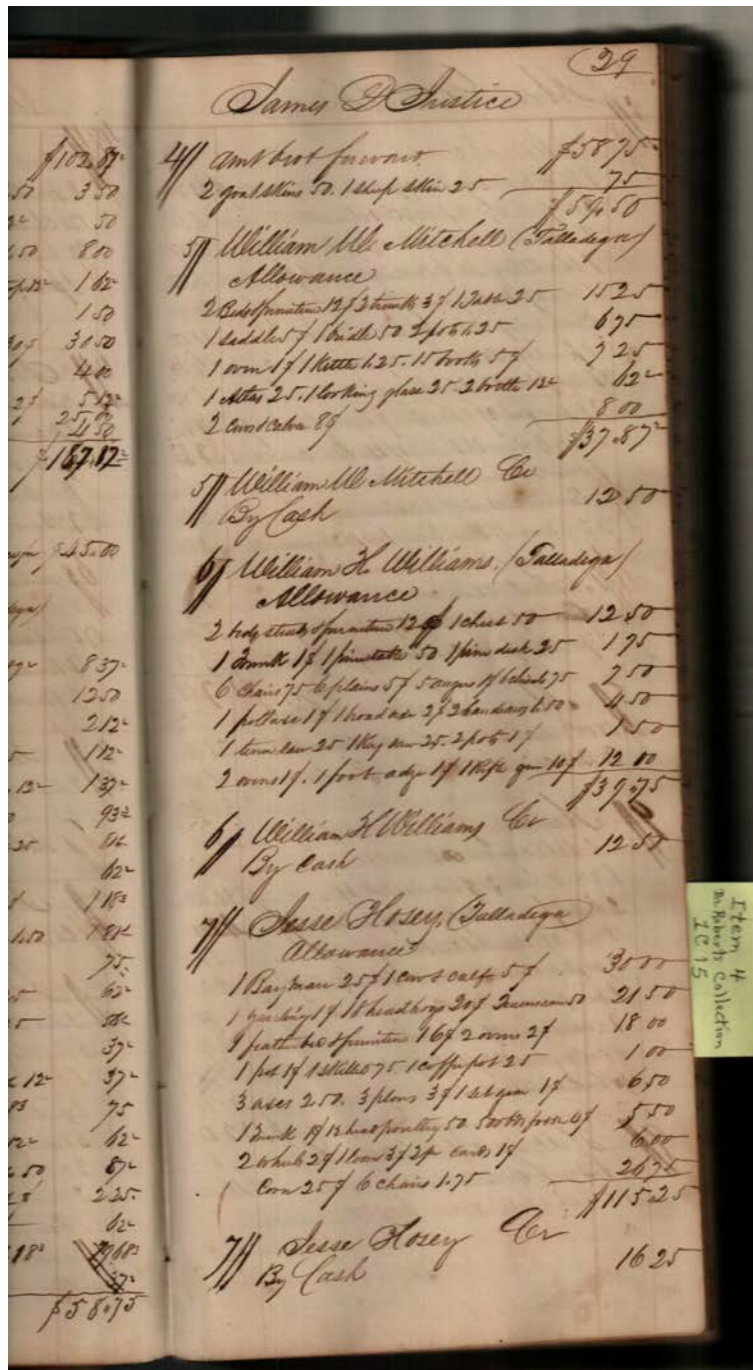 $102.87½
50 3 50
50
50 8 00
1 62½
1 50
30 50
4 00
5 12½
25 00
4 50
$187.17½
$45.00
8 37½
12 50
2 12½
1 12½
13½ 1 37½
93¾
25
62½
1 18¾
1.50
75
62½
37½
12½ 37½
75
62½
50 87½
2 25
62½
18¾
37½
$58.75
29
James D Justice
4// amt brot forward $58 75
2 goat skins 50. 1 sheep skin 25 75
$59.50
5// William W. Mitchell (Talladega)
Allowance
2 Beds & furniture 12$ 2 trunks 3$ 1 25 15 25
1 saddle 5$ 1 bridle 50 2 pots 1.25 6 75
1 oven 1$ 1 kettle 1.25. 15 books 5$ 7 25
1 Atlas 25. 1 looking glass 25. 2 bottle 12½ 62½
2 cows & calves 8$ 8 00
$37.87½
5// William W Mitchell Cr
By Cash 12 50
6// William H. Williams. (Talladega)
Allowance
2 bedsteads & furniture 12$ 1 chest 50 12.50
1 Trunk 1$ 1 pine table 50 1 pine desk 25 1 75
6 Chairs 75 6 plains 5$ 5 augers 1$ 6 chisels 75 7 50
1 pollaxe 1$ 1 broad axe 2$ 2 handsaws 1.50 4 50
1 tenn saw 25 1 Key saw 25. 2 pots 1$ 1 50
2 ovens 1$. 1 foot adze 1$ 1 Rifle gun 10$ 12 00
$39.75
6// William H Williams Cr
By Cash 12 50
7// Jesse Hosey, (Talladega
Allowance
1 Bay Mare 25$ 1 cow & calf 5$ 30 00
1 yearling 1$ 18 head hogs 20$ 50 21 50
9 feather bed & furniture 16$ 2 ovens 2$ 18 00
1 pot 1$ 1 skillet 75. 1 coffe pot 25 1 00
3 axes 2 50. 3 plows 3$ 1 set gear 1$ 6,50
1 Trunk 1$ 12 head poultry 50. 500 lbs pork 4$ 5 50
2 wheels 2$ 1 loom 3$ 2 pr cards 1$ 6.00
Corn 25$ 6 chairs 1.75 26 75
$115.25
7// Jesse Hosey Cr
By Cash 16 25
Item 4
Dr. Roberts Collection
IC15